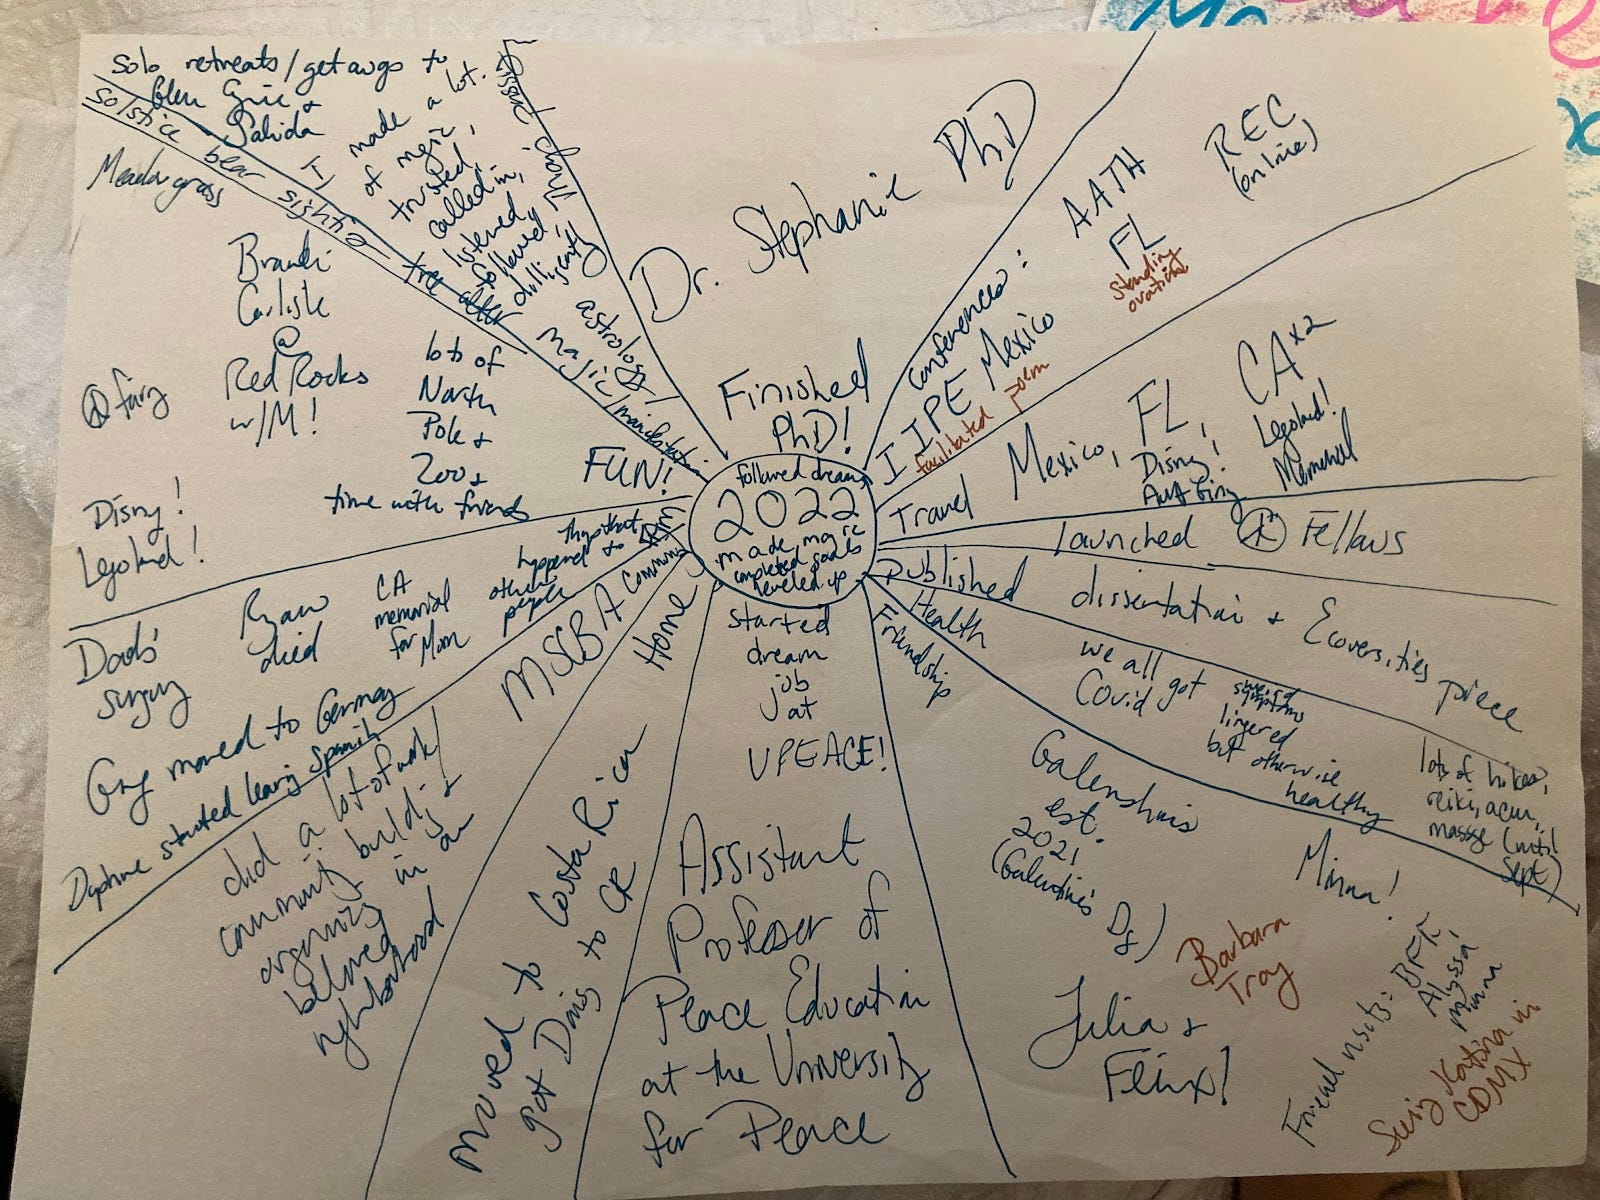 followed dreams
2022
made magic
completed goals
leveled up
Finished
PhD!
Dr. Stephanie PhD
Conferences:
AATH
FL
standing
ovation
REC
(online)
IIPE Mexico
facilitated poem
Travel
Mexico,
FL,
Disny!
CA x2
Legoland!
Memorial
Launched
Fellows
Published
dissertation + Ecoversities
piece
Health
we all got
Covid
lingered
but otherwise
healthy
lots of hikes,
reiki, acu,
massge (until
Sept)
Friendship
Galenshuis
est.
2021
(Galentine's
Minna!
Barbara
Troy
Julia +
Felix!
BFK,
Alyssa,
Minna
Katrina in
CDMX
started
dream
job
at
UPEACE!
Assistant
Professor of
Peace Education
at the University
for Peace
Home
moved to Costa Rica
got to CR
MSCBA Community
did a lot of work/
community building +
organizing in our
beloved
nghborhood
things that
happened to
other
people
CA
memorial
for Mom
Ryan
died
Dad's
surgery
moved to Germany
Daphne started learing Spanish
FUN!
lots of
North
Pole +
Zoo +
time with friends
Brandi
Carlisle
@
Red Rocks
w/M!
Meadowgrass
Disny!
Legoland!
solstice bear sighting
tree alter
solo retreats/getawys to
Glen Eyrie +
Salida
magic/manifestation
I made a lot
of mgic,
trusted,
called in,
listened,
followed
dilligently
astrology/